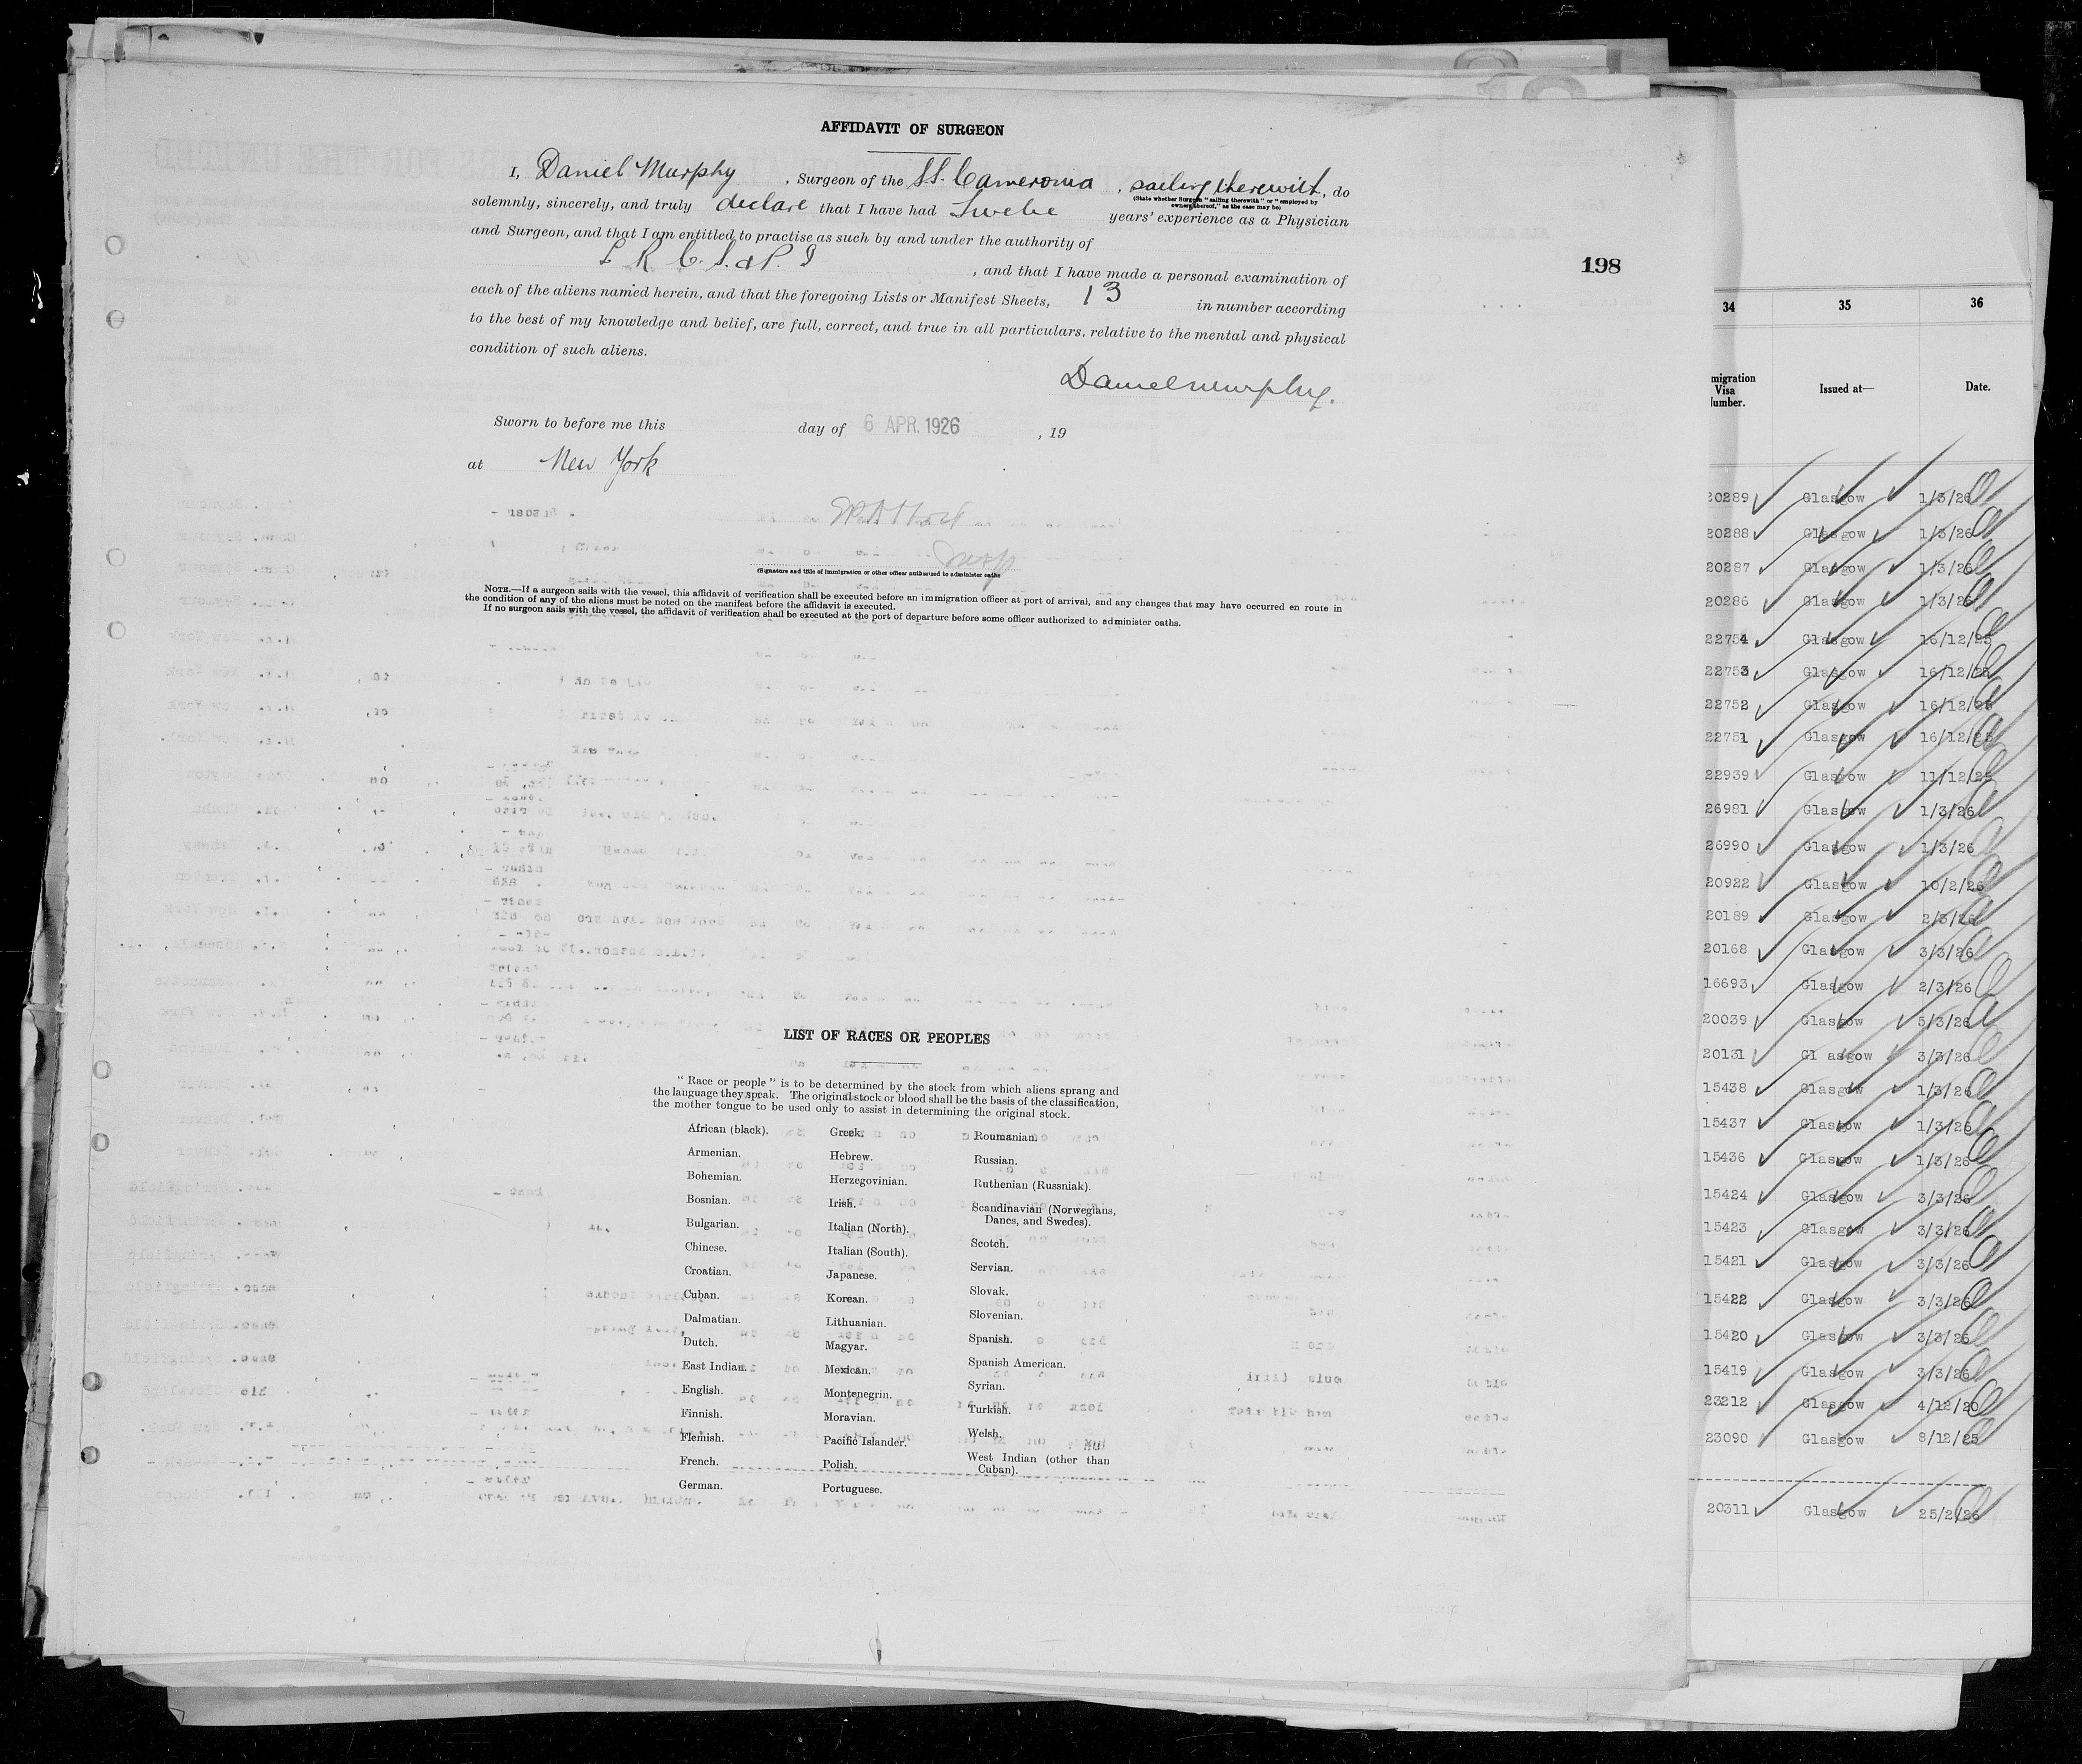 AFFIDAVIT OF SURGEON
I, Daniel Murphy, Surgeon of the SS. Cameronia, sailing therewith, do
(State whether Surgeon "sailing therewith" or "employed by
owners thereof," as the case may be)
solemnly, sincerely, and truly declare that I have had Twelve years' experience as a Physician
and Surgeon, and that I am entitled to practise as such by and under the authority of
L R C. S. & P. I, and that I have made a personal examination of
each of the aliens named herein, and that the foregoing Lists or Manifest Sheets, 13 in number according
to the best of my knowledge and belief, are full, correct, and true in all particulars, relative to the mental and physical
condition of such aliens.
Daniel Murphy.
Sworn to before me this day of 6 APR. 1926, 19
at New York
(Signature and title of immigration or other officer authorized to administer oaths
NOTE.—If a surgeon sails with the vessel, this affidavit of verification shall be executed before an immigration officer at port of arrival, and any changes that may have occurred en route in
the condition of any of the aliens must be noted on the manifest before the affidavit is executed.
If no surgeon sails with the vessel, the affidavit of verification shall be executed at the port of departure before some officer authorized to administer oaths.
198
LIST OF RACES OR PEOPLES
"Race or people" is to be determined by the stock from which aliens sprang and
the language they speak. The original stock or blood shall be the basis of the classification,
the mother tongue to be used only to assist in determining the original stock.
African (black).
Armenian.
Bohemian.
Bosnian.
Bulgarian.
Chinese.
Croatian.
Cuban.
Dalmatian.
Dutch.
East Indian.
English.
Finnish.
Flemish.
French.
German.
Greek.
Hebrew.
Herzegovinian.
Irish.
Italian (North).
Italian (South).
Japanese.
Korean.
Lithuanian.
Magyar.
Mexican.
Montenegrin.
Moravian.
Pacific Islander.
Polish.
Portuguese.
Roumanian.
Russian.
Ruthenian (Russniak).
Scandinavian (Norwegians,
Danes, and Swedes).
Scotch.
Servian.
Slovak.
Slovenian.
Spanish.
Spanish American.
Syrian.
Turkish.
Welsh.
West Indian (other than
Cuban).
34 35 36
migration
Visa
Number.
Issued at—
Date.
20289 Glasgow 1/3/26
20288 Glasgow 1/3/26
20287 Glasgow 1/3/26
20286 Glasgow 1/3/26
22754 Glasgow 16/12/25
22753 Glasgow 16/12/25
22752 Glasgow 16/12/25
22751 Glasgow 16/12/25
22939 Glasgow 11/12/25
26981 Glasgow 1/3/26
26990 Glasgow 1/3/26
20922 Glasgow 10/2/26
20189 Glasgow 2/3/26
20168 Glasgow 3/3/26
16693 Glasgow 2/3/26
20039 Glasgow 5/3/26
20131 Gl asgow 3/3/26
15438 Glasgow 1/3/26
15437 Glasgow 1/3/26
15436 Glasgow 1/3/26
15424 Glasgow 3/3/26
15423 Glasgow 3/3/26
15421 Glasgow 3/3/26
15422 Glasgow 3/3/26
15420 Glasgow 3/3/26
15419 Glasgow 3/3/26
23212 Glasgow 4/12/20
23090 Glasgow 8/12/25
20311 Glasgow 25/2/26